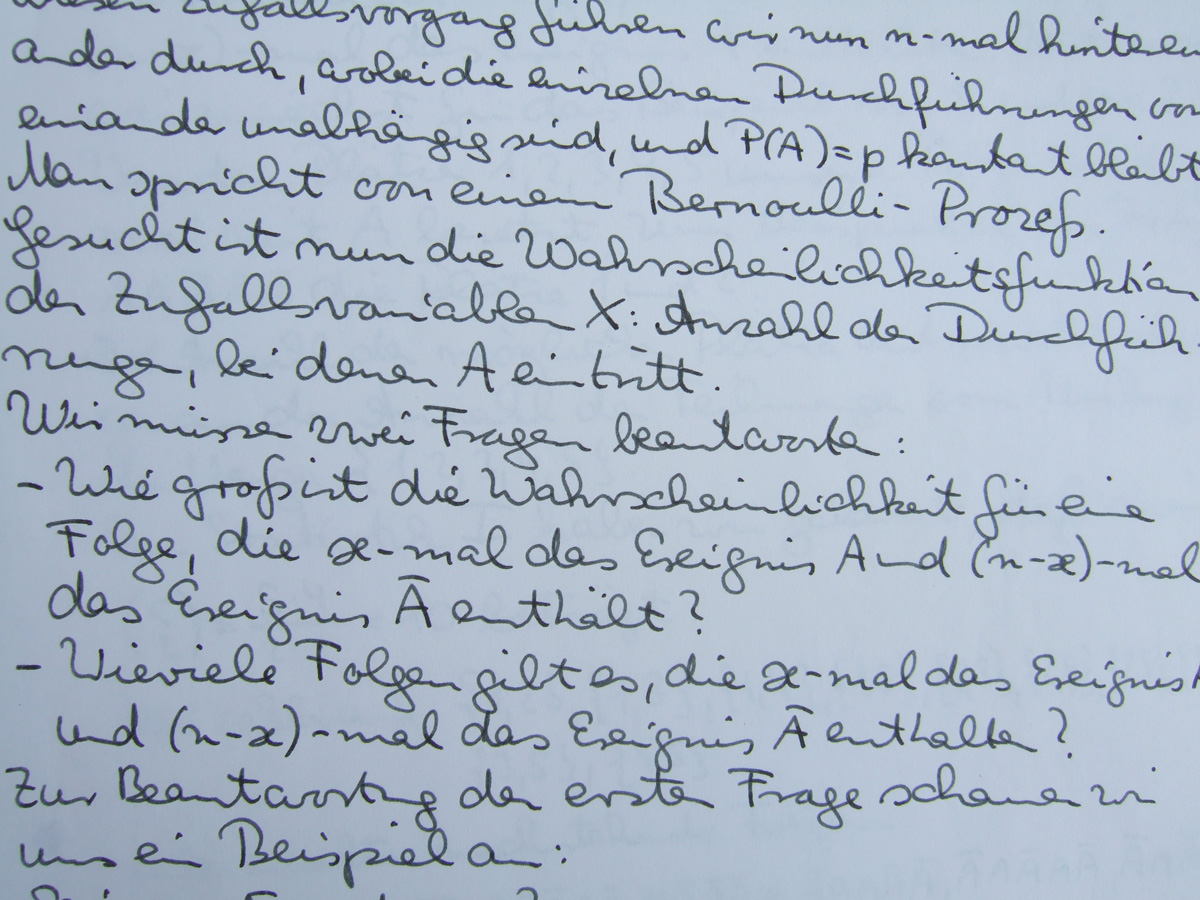 diesen Zufallsvorgang führen wir nun n-mal hinterein
ander durch, wobei die einzelnen Durchführungen von
einander unabhängig sind, und P(A)=p konstant bleibt
Man spricht von einem Bernoulli-Prozeß.
Gesucht ist nun die Wahrscheinlichkeitsfunktion
der Zufallsvariablen X: Anzahl der Durchfüh-
rungen, bei denen A eintritt.
Wir müssen zwei Fragen beantworten:
- Wie groß ist die Wahrscheinlichkeit für eine
Folge, die x-mal das Ereignis A und (n-x)-mal
das Ereignis Ā enthält?
- Wieviele Folgen gibt es, die x-mal das Ereignis A
und (n-x)-mal das Ereignis Ā enthalten?
Zur Beantwortung der ersten Frage schauen wir
uns ein Beispiel an: